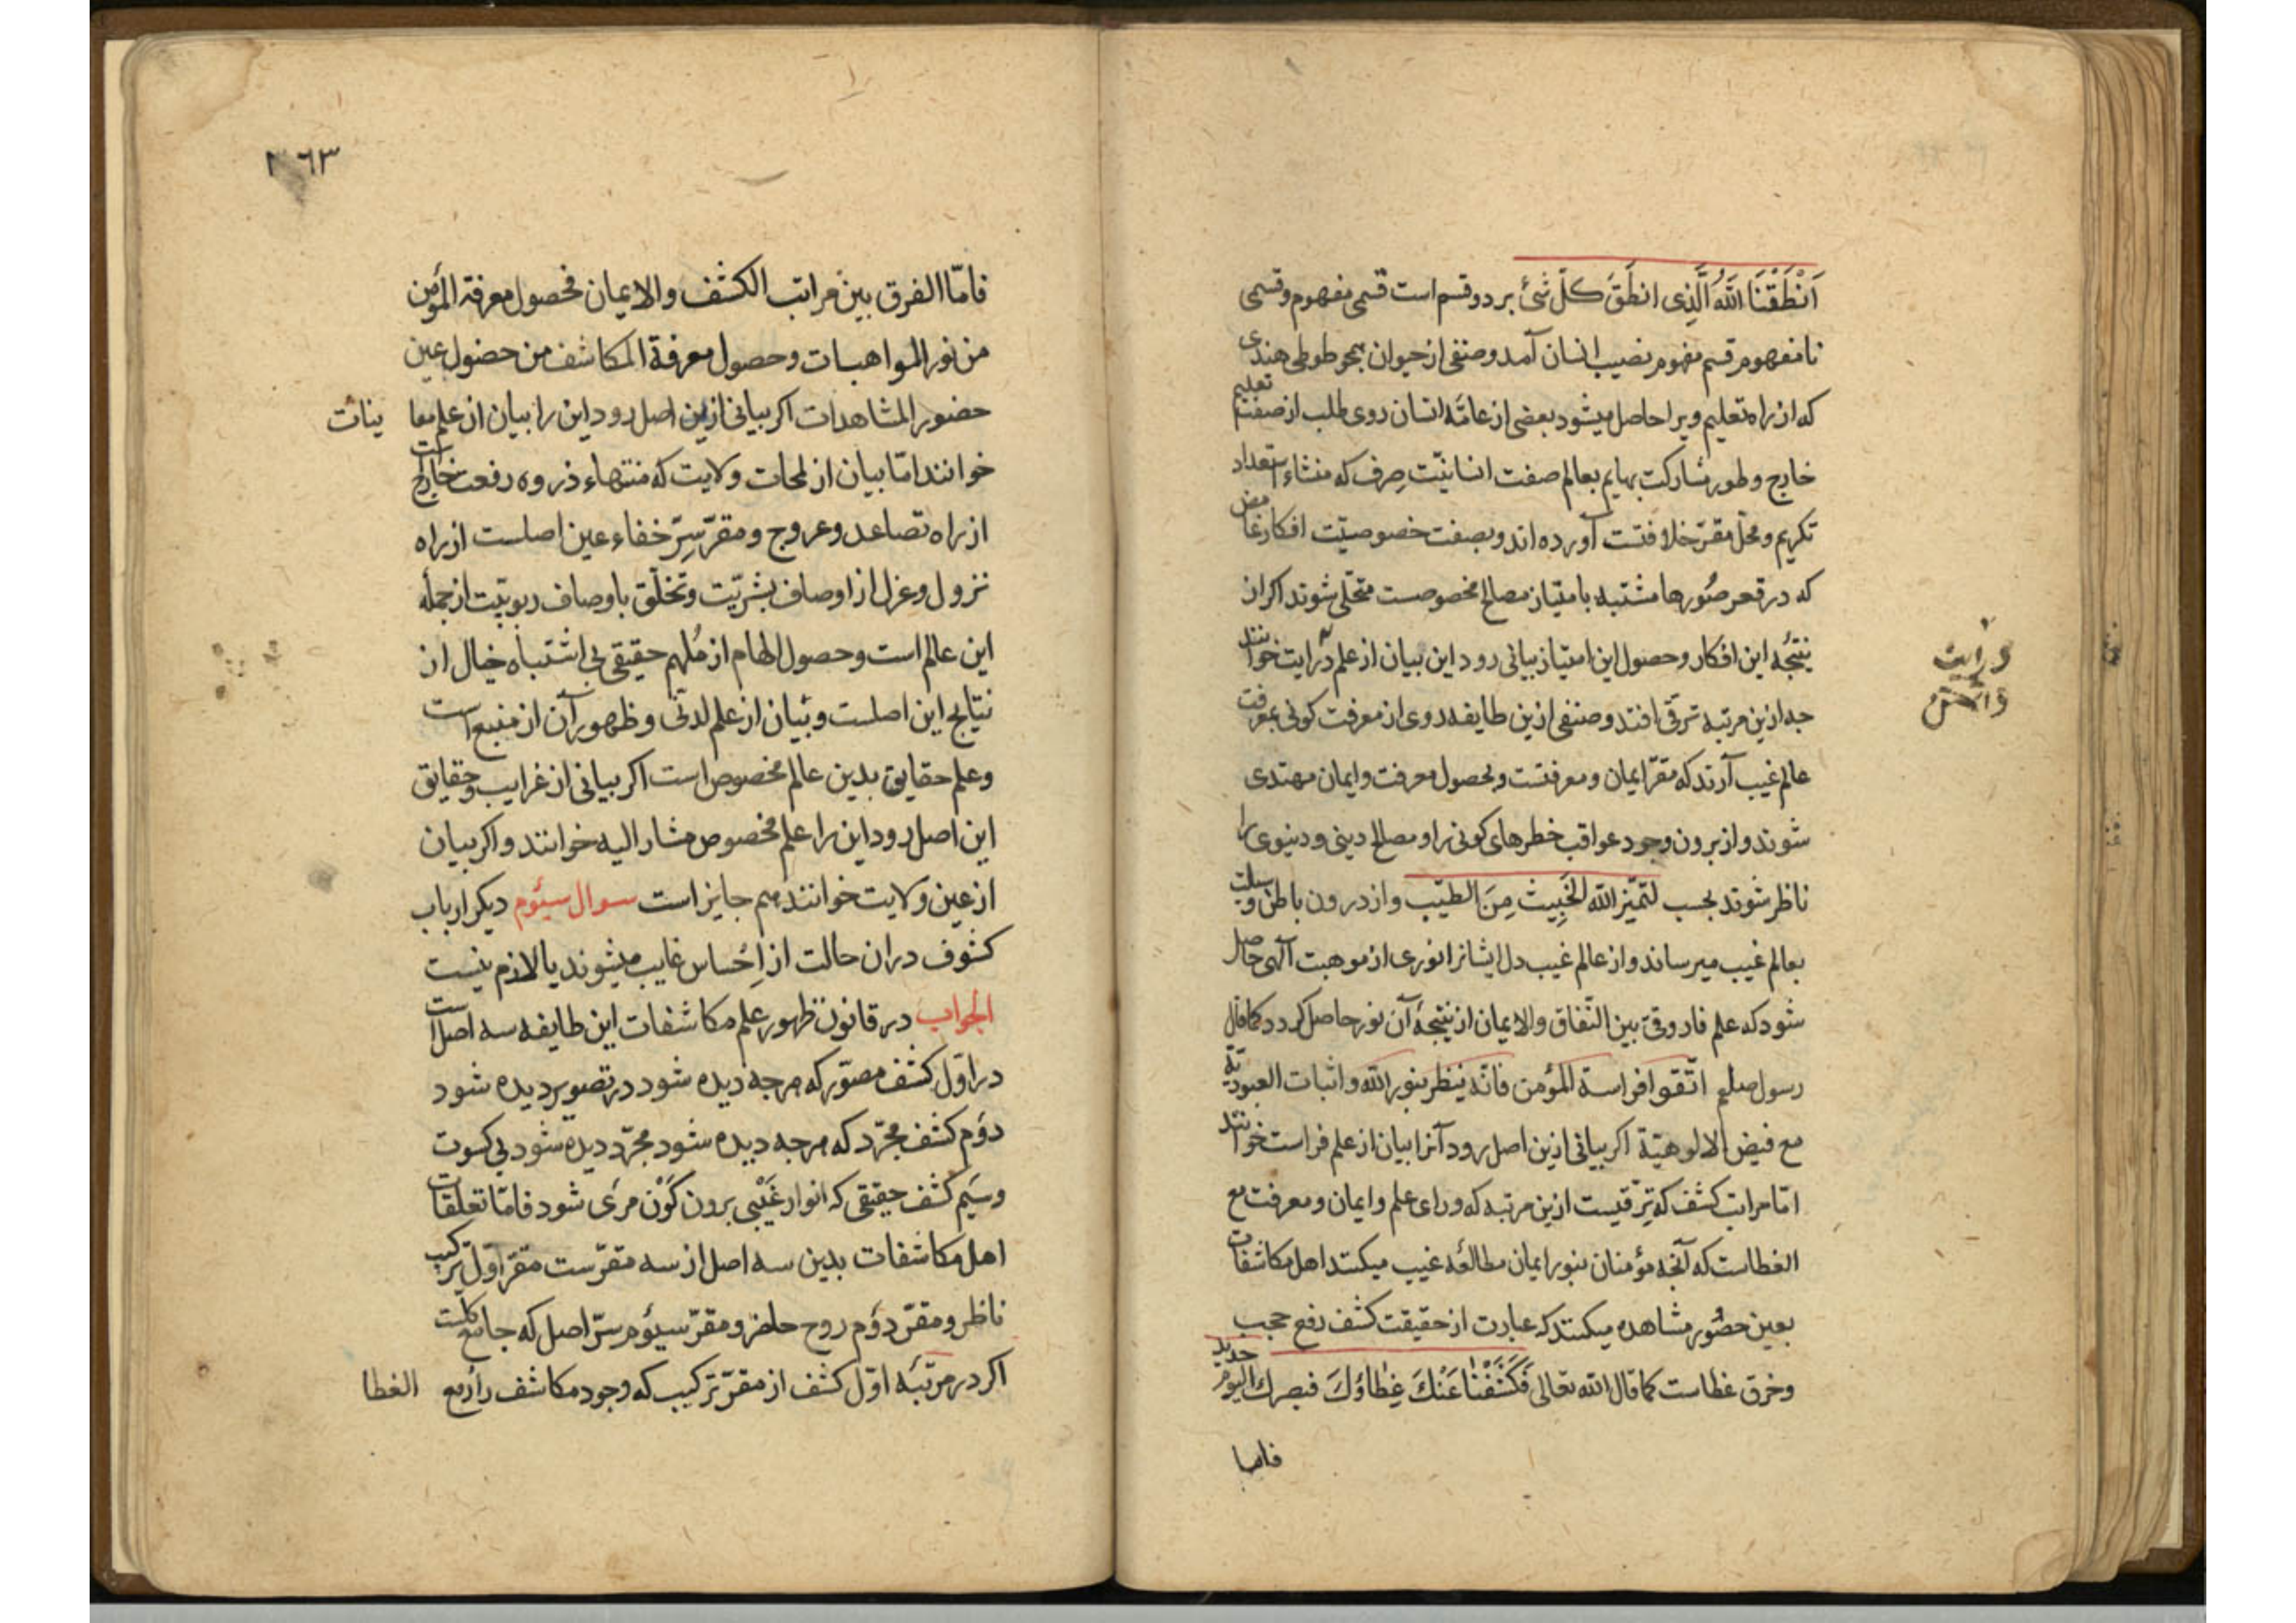 اَنْطَقْنَا اللّٰهُ الَّذِی انطَقَ کلّ شَئ بر دو قسم است قسمی مفهوم و قسمی
نامفهوم قسم مفهوم نصیب انسان آمد و صنفی از حیوان همجو طوطی هندی
که از راه تعلیم ویرا حاصل میشود بعضی از عامّهٔ انسان روی طلب از صفت تعلیم
خارج و طور مشارکت بهایم بعالم صفت انسانیّت صِرف که منشاء استعداد
تکریم و محلّ مقرّ خلافتست آورده اند و بصفت خصوصیّت افکار غامض
که در قعر صُورها مشتبه بامتیاز مصالح مخصوصست متحلّی شوند اکر از
نتیجهٔ این افکار و حصول این امتیاز بیانی رود این بیان از علم درایت خوانند
جه ازین مرتبه ترقّی افتد و صنفی ازین طایفه روی از معرفت کونی بمعرفت
عالم غیب آرند که مقرّ ایمان و معرفتست و بحصول معرفت و ایمان مهتدی
شوند و از برون وجود عواقب خطرهای کونی را و مصالح دینی و دنیوی را
ناظر شوند بحسب لتمیّز اللّه الخَبِیثَ مِنَ الطیّب و از درون باطن وسیلت
بعالم غیب میرساند و از عالم غیب دل ایشانرا نوری از موهبت الٓهی حاصل
شود که علم فاروقی بین النّفاق والایمان از نتیجهٔ آن نور حاصل کردد کما قال
رسول صلعم اتّقوا فراسة المؤمن فانّه ینظر بنور اللّه و اثبات العبودیّة
مع فیض الالوهیّة اکر بیانی ازین اصل رود آنرا بیان از علم فراست خوانند
امّا مراتب کشف که ترقّیست ازین مرتبه که ورای علم و ایمان و معرفت مع
الغطاست که آنجه مؤمنان بنور ایمان مطالعهٔ غیب میکنند اهل مکاشفات
بعین حضُور مشاهده میکنند که عبارت از حقیقت کشف رفع حجب
و خرق غطاست کما قال اللّه تعالی فَکَشَفْنَا عَنْكَ غِطٰاؤُكَ فبصرك الیوم حدید
درایت
فامّا
٣٦٣
فامّا الفرق بین مراتب الکشف والایمان فحصول معرفة المؤمن
من نور المواهبات و حصول معرفة المکاشف من حضول عین
حضور المشاهدات اکر بیانی ازین اصل رود این را بیان از علم معاینات
خوانند امّا بیان از لمحات ولایت که منتهاء ذروه رفعت خارج است
از راه تصاعد و عروج و مقرّ سِرّ خفاء عین اصلست از راه
نزول و عزل از اوصاف بشریّت و تخلّق باوصاف ربوبیّت از جملهٔ
این عالم است و حصول الهام از مُلهم حقیقی بی اشتباه خیال از
نتایج این اصلست و بیان از علم لدنّی و ظهور آن از منبع است
و علم حقایق بدین عالم مخصوص است اکر بیانی از غرایب و حقایق
این اصل رود این را علم مخصوص مشار الیه خوانند و اکر بیان
از عین ولایت خوانند هم جایز است سوال سیؤم دیکر ارباب
کشوف در ان حالت از اِحْساس غایب میشوند یا لازم نیست
الجواب در قانون ظهور علم مکاشفات این طایفه سه اصل است
در اوّل کشف مصوّر که هرجه دیده شود در تصویر دیده شود
دوّم کشف مجرّد که هرجه دیده شود مجرّد دیده شود بی کسوت
وسیّم کشف حقیقی که انوار غَیْبی برون کَوْن مرئی شود فامّا تعلّقات
اهل مکاشفات بدین سه اصل از سه مقرّست مقرّ اوّل ترکیب
ناظر و مقرّ دوّم روح حاضر و مقرّ سیؤم سرّ اصل که جامع کلّست
اکر در مرتبهٔ اوّل کشف از مقرّ ترکیب که وجود مکاشف را رفع الغطا